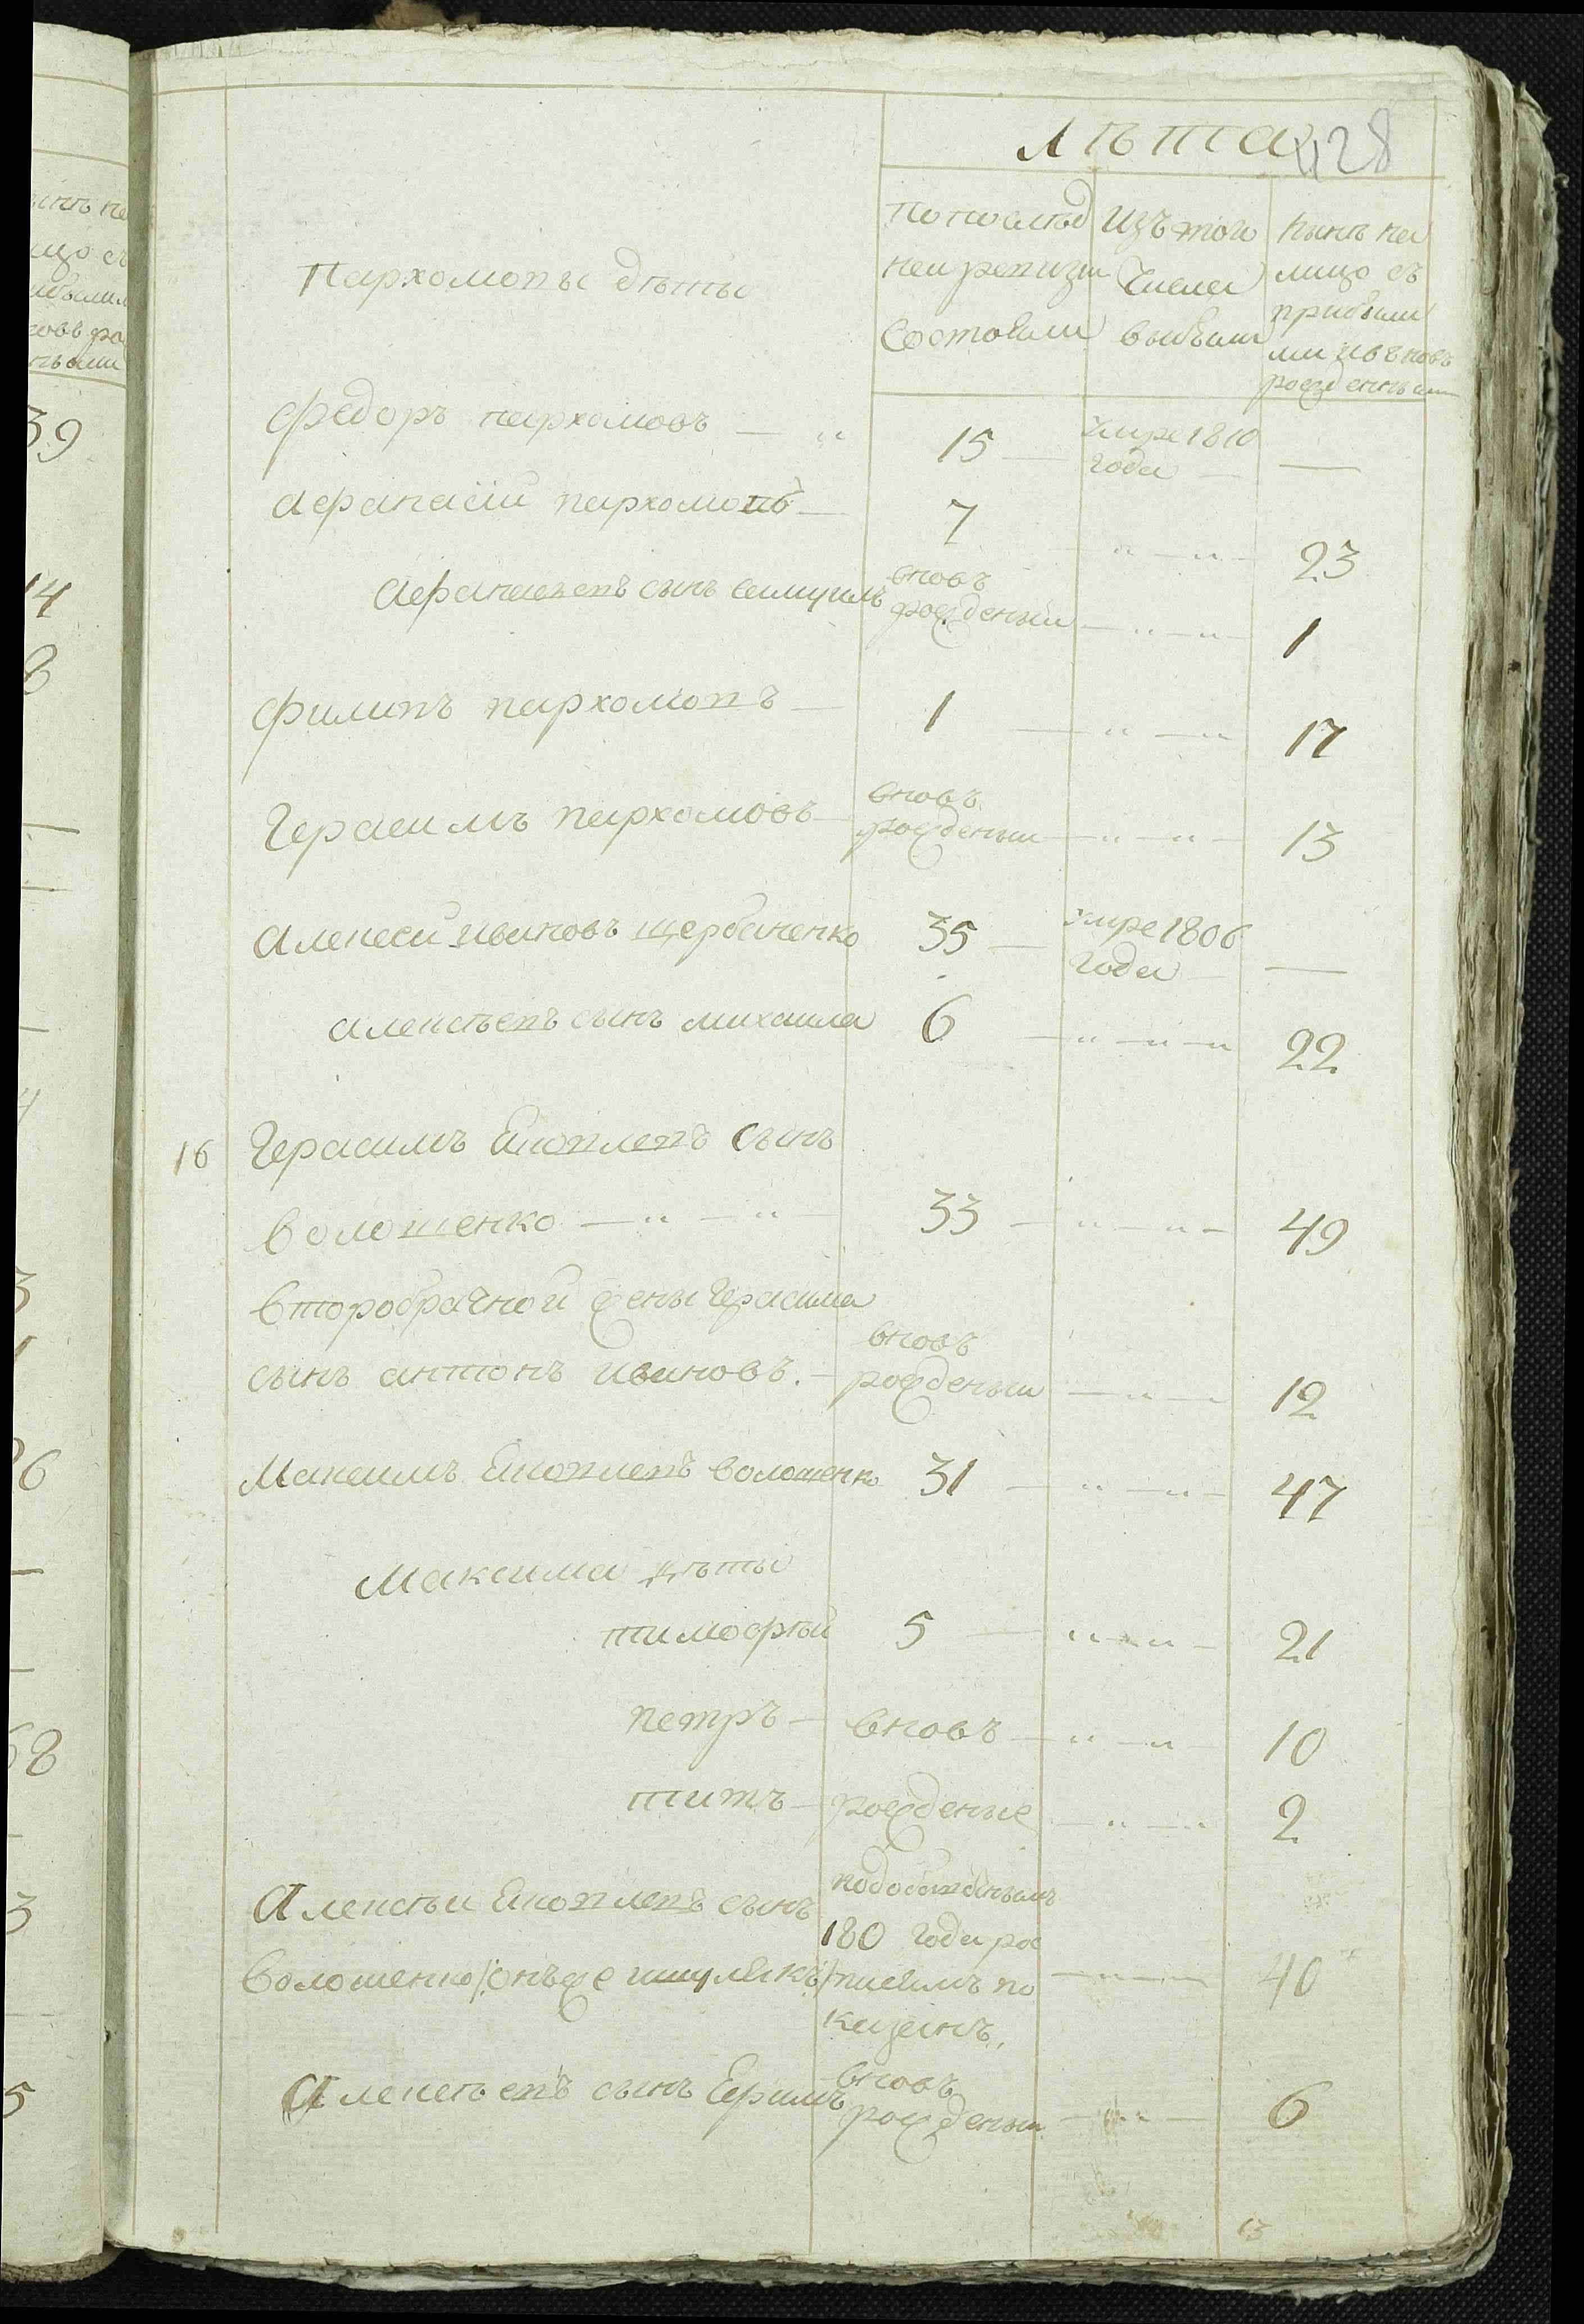 лѣта
428
по послѣд
ней ревизи
состояли
изъ того
числа
выбыли
нынѣ на
лицо съ
прибыли
ми ивъновь
рожденными
Пархомовы дѣты
Федоръ пархомовъ — „ 15 — умре 1810
года — —
афанасій пархомовъ — 7 — „ — „ — 23
афанасьевъ сынъ самуилъ вновъ
рожденый — „ — „ — 1
Филипъ пархомовъ — 1 — „ — „ 17
Герасимъ пархомовъ — вновъ
рожденый — „ — „ — 13
алексей ивановъ щербаненко 35 — умре 1806
года — —
алексѣевъ сынъ михаила 6 — „ — „ — „ 22
16 Герасимъ Яковлевъ сынъ
волошенко — „ — „ — 33 — „ — „ — 49
второбрачной жены Герасима
сынъ антонъ ивановъ. — вновъ
рожденый — „ — 12
Максимъ Яковлевъ волошенко 31 — „ — „ — 47
Максима дѣты
тимофѣй 5 — „ — „ — 21
петръ — вновъ — „ — „ — 10
титъ — рожденые — „ — „ 2
Алексѣй Яковлевъ сынъ
180 года рос
волошенко /: онъже шулякъ:/ писимъ по — „ — 40
казанъ,
Алексѣевъ сынъ Ефимъ вновъ
рожденый — „ — 6